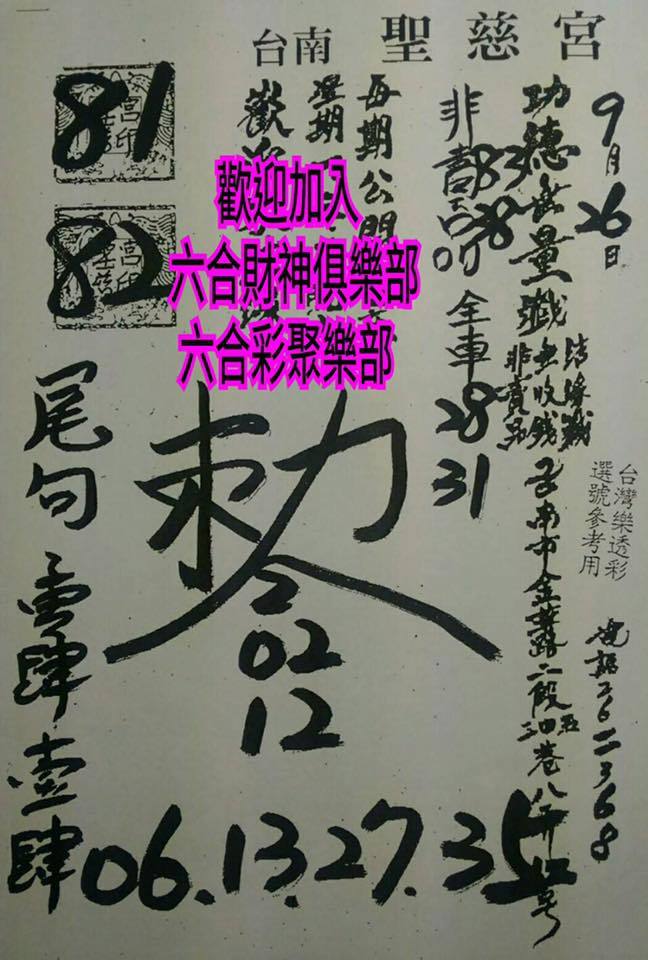 台南 聖慈宮
9月26日
功德無量
非賣品
83
28
全車
28
31
結緣
無收錢
非賣品
台灣樂透彩
選號參考用
台南市金華路二段
電話2622368
每期公開
星期
歡迎
歡迎加入
六合財神俱樂部
六合彩聚樂部
81
82
宮印
宮印
尾句
零肆壹肆
敕令
2
02
12
06.13.27.35